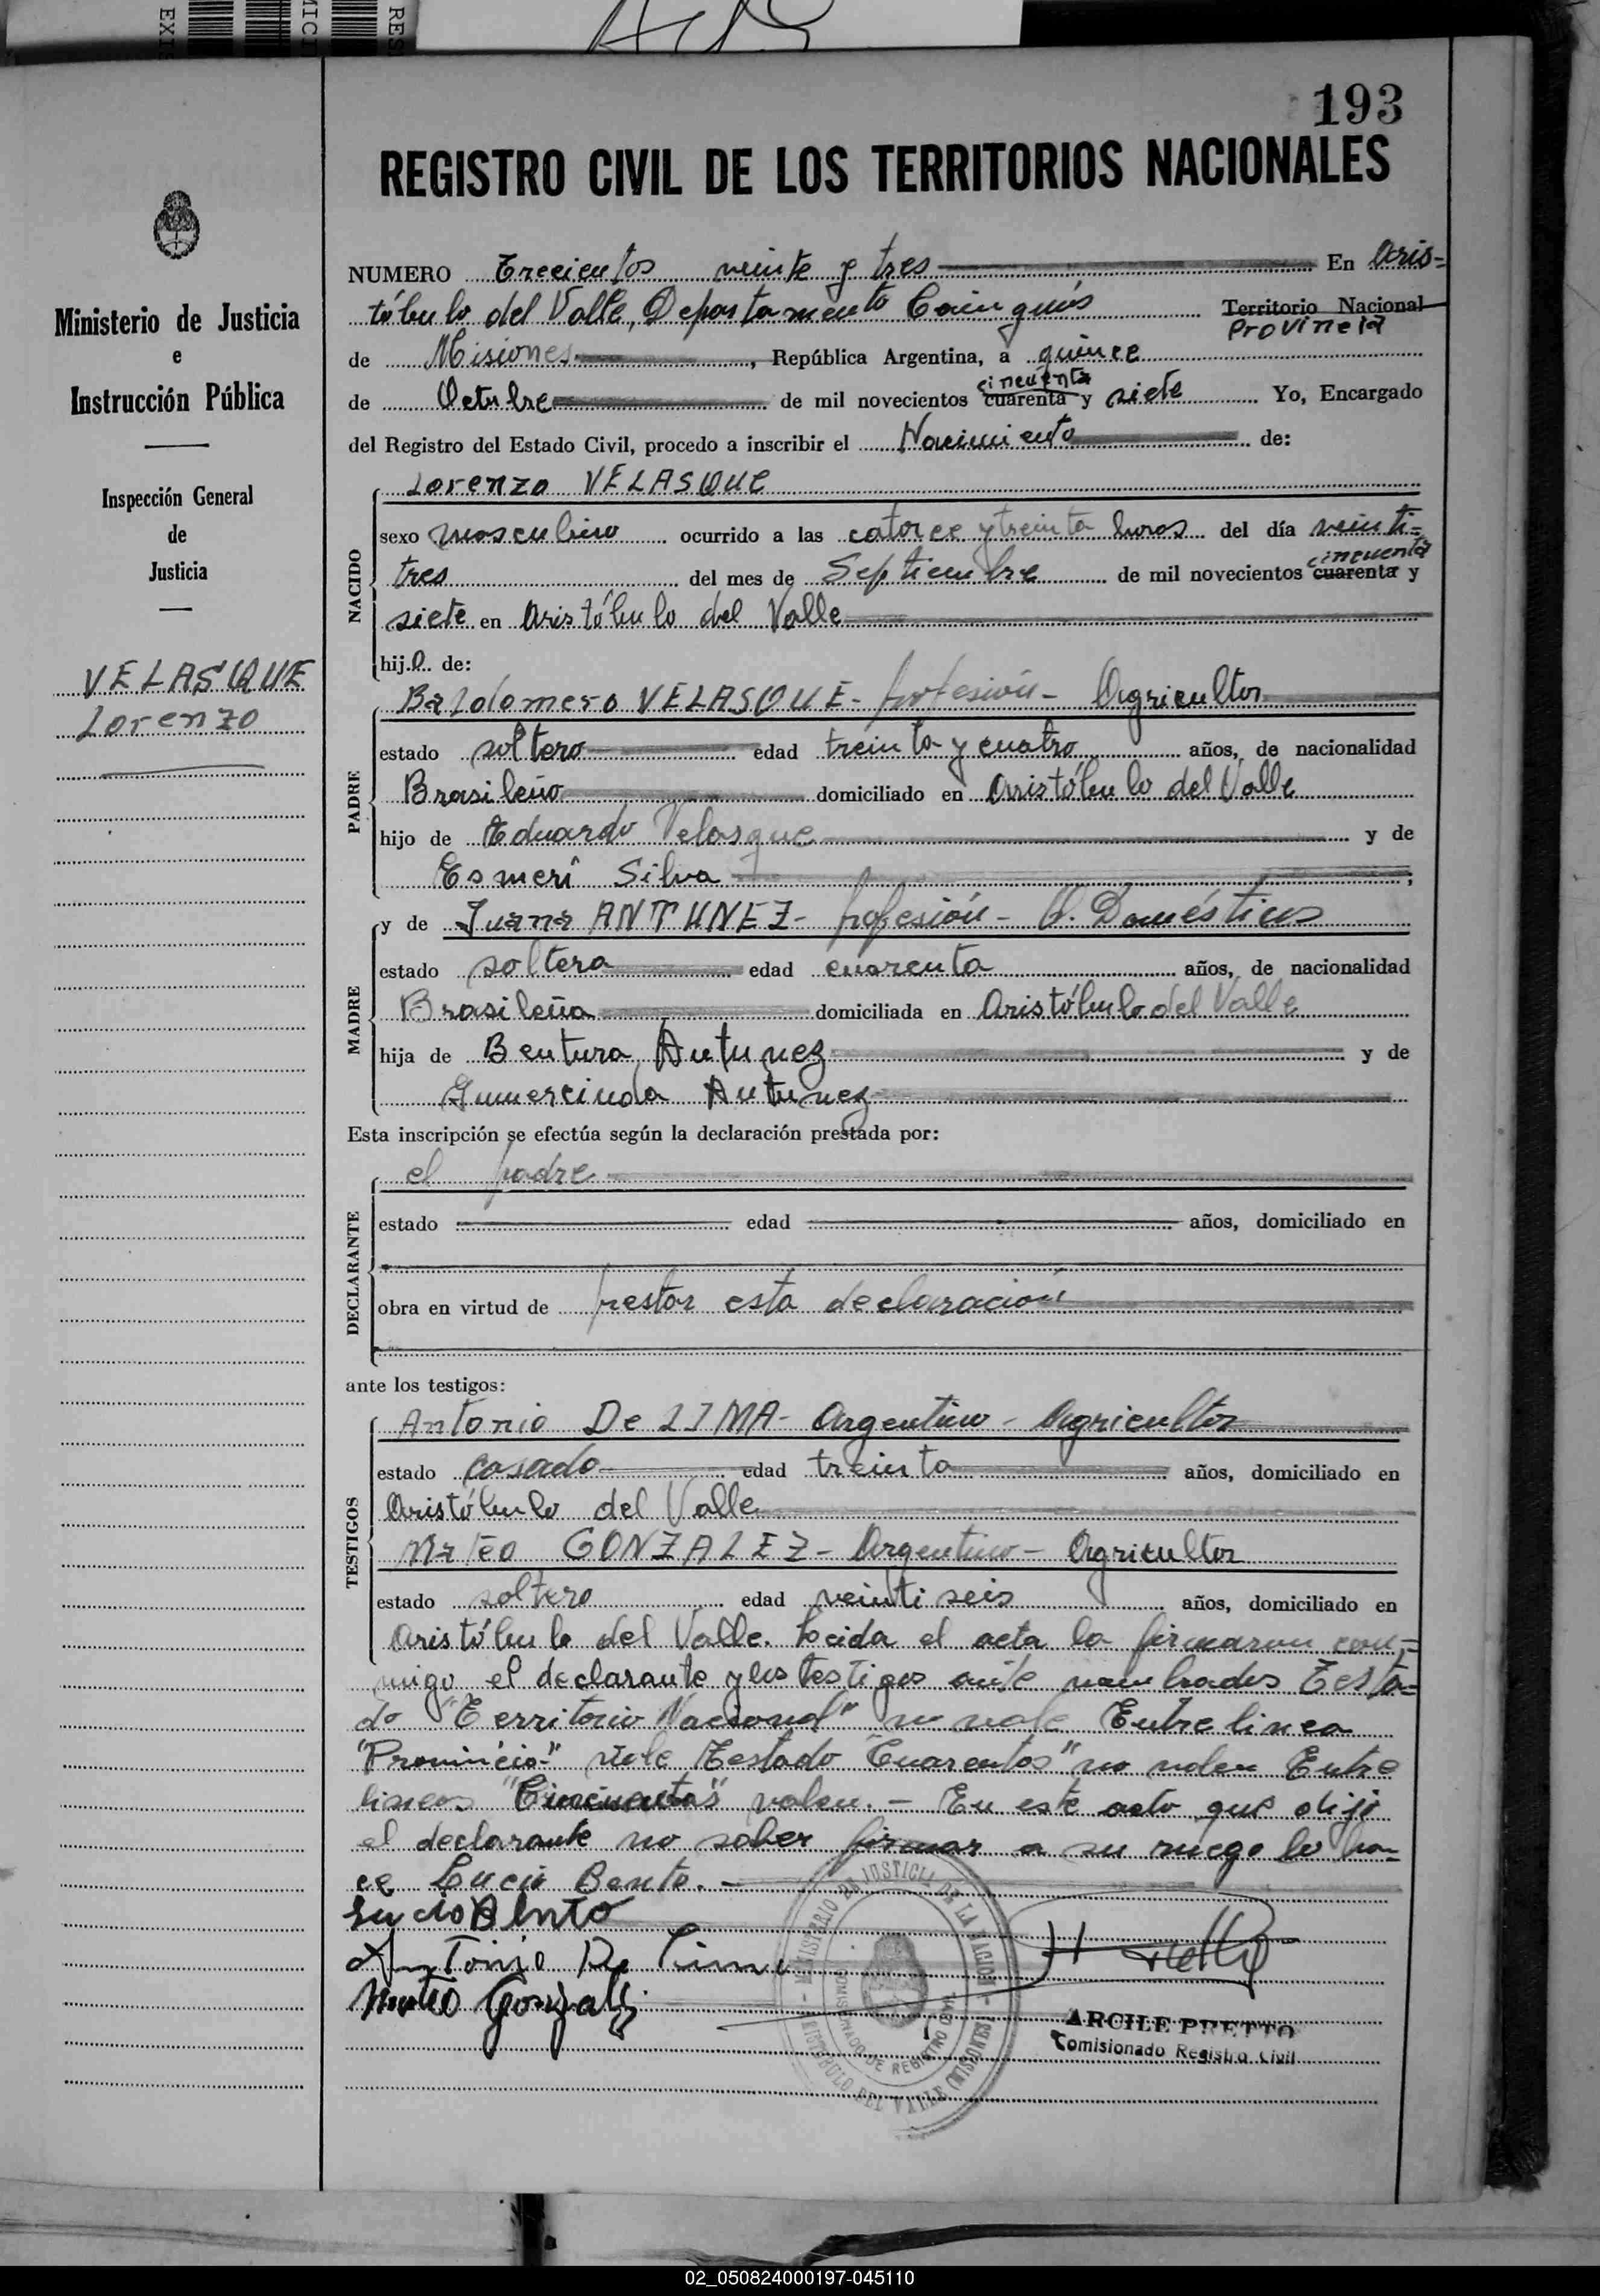 193
REGISTRO CIVIL DE LOS TERRITORIOS NACIONALES
Ministerio de Justicia
e
Instrucción Pública
Inspección General
de
Justicia
VELASQUE
Lorenzo
NUMERO Trecientos veinte y tres En Aris=
tóbulo del Valle, Departamento Cainguás Territorio Nacional
Provincia
de Misiones, República Argentina, a quince
cincuenta
de Octubre de mil novecientos cuarenta y siete Yo, Encargado
del Registro del Estado Civil, procedo a inscribir el Nacimiento de:
NACIDO
Lorenzo VELASQUE
sexo masculino ocurrido a las catorce y treinta horas del día veinti=
cincuenta
tres del mes de Septiembre de mil novecientos cuarenta y
siete en Aristóbulo del Valle
hijo de:
PADRE
Baldomero VELASQUE- profesión- Agricultor
estado soltero edad treinta y cuatro años, de nacionalidad
Brasileño domiciliado en Aristóbulo del Valle
hijo de Eduardo Velasque y de
Esmerí Silva ;
MADRE
y de Juana ANTUNEZ- profesión- Q. Domésticos
estado soltera edad cuarenta años, de nacionalidad
Brasileña domiciliada en Aristóbulo del Valle
hija de Bentura Antunez y de
Gumercinda Antunez
Esta inscripción se efectúa según la declaración prestada por:
DECLARANTE
el padre
estado edad años, domiciliado en
obra en virtud de prestar esta declaración
ante los testigos:
TESTIGOS
Antonio De LIMA- Argentino- Agricultor
estado casado edad treinta años, domiciliado en
Aristóbulo del Valle
Mateo GONZALEZ- Argentino- Agricultor
estado soltero edad veinti seis años, domiciliado en
Aristóbulo del Valle. Leida el acta la firmaron con=
migo el declarante y los testigos ante nombrados Testa=
do "Territorio Nacional" no vale Entre linea
"Provincia" vale Testado "Cuarentas" no valen Entre
lineas "Cincuentas" valen.- En este acto que dijo
el declarante no saber firmar a su ruego lo ha=
ce Lucio Bento.-
Lucio Bento
Antonio De Lima
Mateo Gonzalez
MINISTERIO DE JUSTICIA DE LA NACION
COMISIONADO DE REGISTRO CIVIL
ARISTOBULO DEL VALLE (MISIONES)
ARCILE PRETTO
Comisionado Registro Civil
02_050824000197-045110